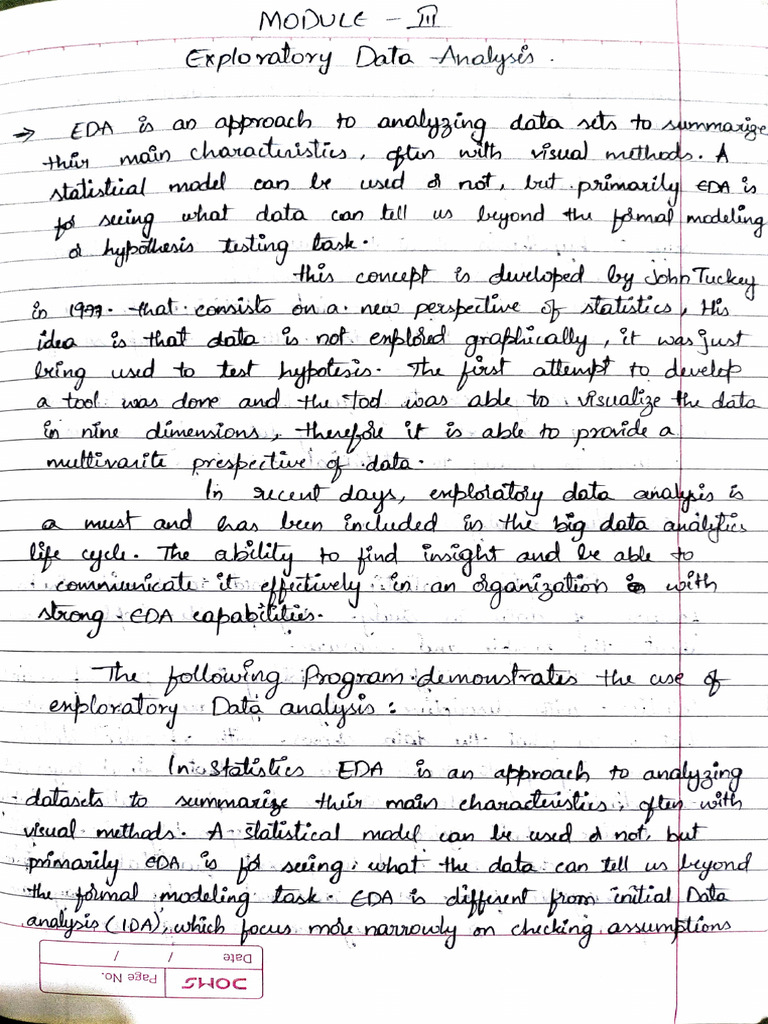 MODULE - III
Exploratory Data Analysis.
→ EDA is an approach to analyzing data sets to summarize
their main characteristics, often with visual methods. A
statistical model can be used or not, but primarily EDA is
for seeing what data can tell us beyond the formal modeling
or hypothesis testing task.
this concept is developed by John Tuckey
in 1977. that consists on a new perspective of statistics, His
idea is that data is not explored graphically, it was just
being used to test hypotesis. The first attempt to develop
a tool was done and the tool was able to visualize the data
in nine dimensions, therefore it is able to provide a
multivarite prespective of data.
In recent days, exploratory data analysis is
a must and has been included in the big data analytics
life cycle. The ability to find insight and be able to
communicate it effectively in an organization is with
strong EDA capabilities.
The following Program demonstrates the use of
exploratory Data analysis :
In Statistics EDA is an approach to analyzing
datasets to summarize their main characteristics, often with
visual methods. A statistical model can be used or not, but
primarily EDA is for seeing what the data can tell us beyond
the formal modeling task. EDA is different from initial Data
analysis (IDA), which focus more narrowly on checking assumptions
DOMS
Page No.
Date / /